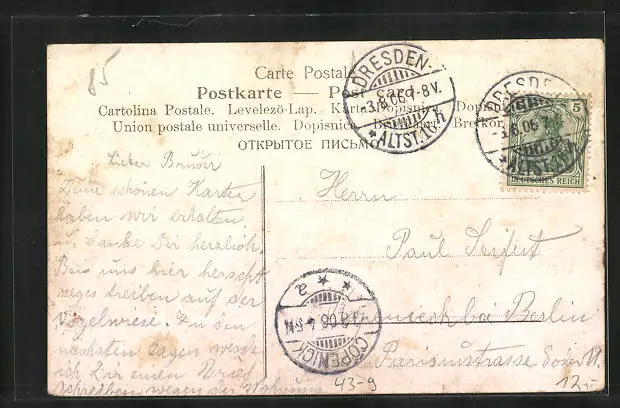 85
Carte Postale
Postkarte — Post Card
Cartolina Postale. Levelező-Lap. Karta Dopisnica. Dopis
Union postale universelle. Dopisnica. Brefkor
ОТКРЫТОЕ ПИСЬМО
DRESDEN-
-3.8.06.7-8V.
*ALTST.16.h
DRESDEN
-3.8.06.7
*ALTST.
5
DEUTSCHES REICH
Lieber Bruder
Deine schönen Karten
haben wir erhalten
u. danke Dir herzlich
Bei uns hier herscht
reges treiben auf der
Vogelwiese. In den
nächsten Tagen werde
ich Dir einen Brief
schreiben wegen der Wohnung
Herrn
Paul Seifert
bei Berlin
COPENICK
* * a
43-9
12.-